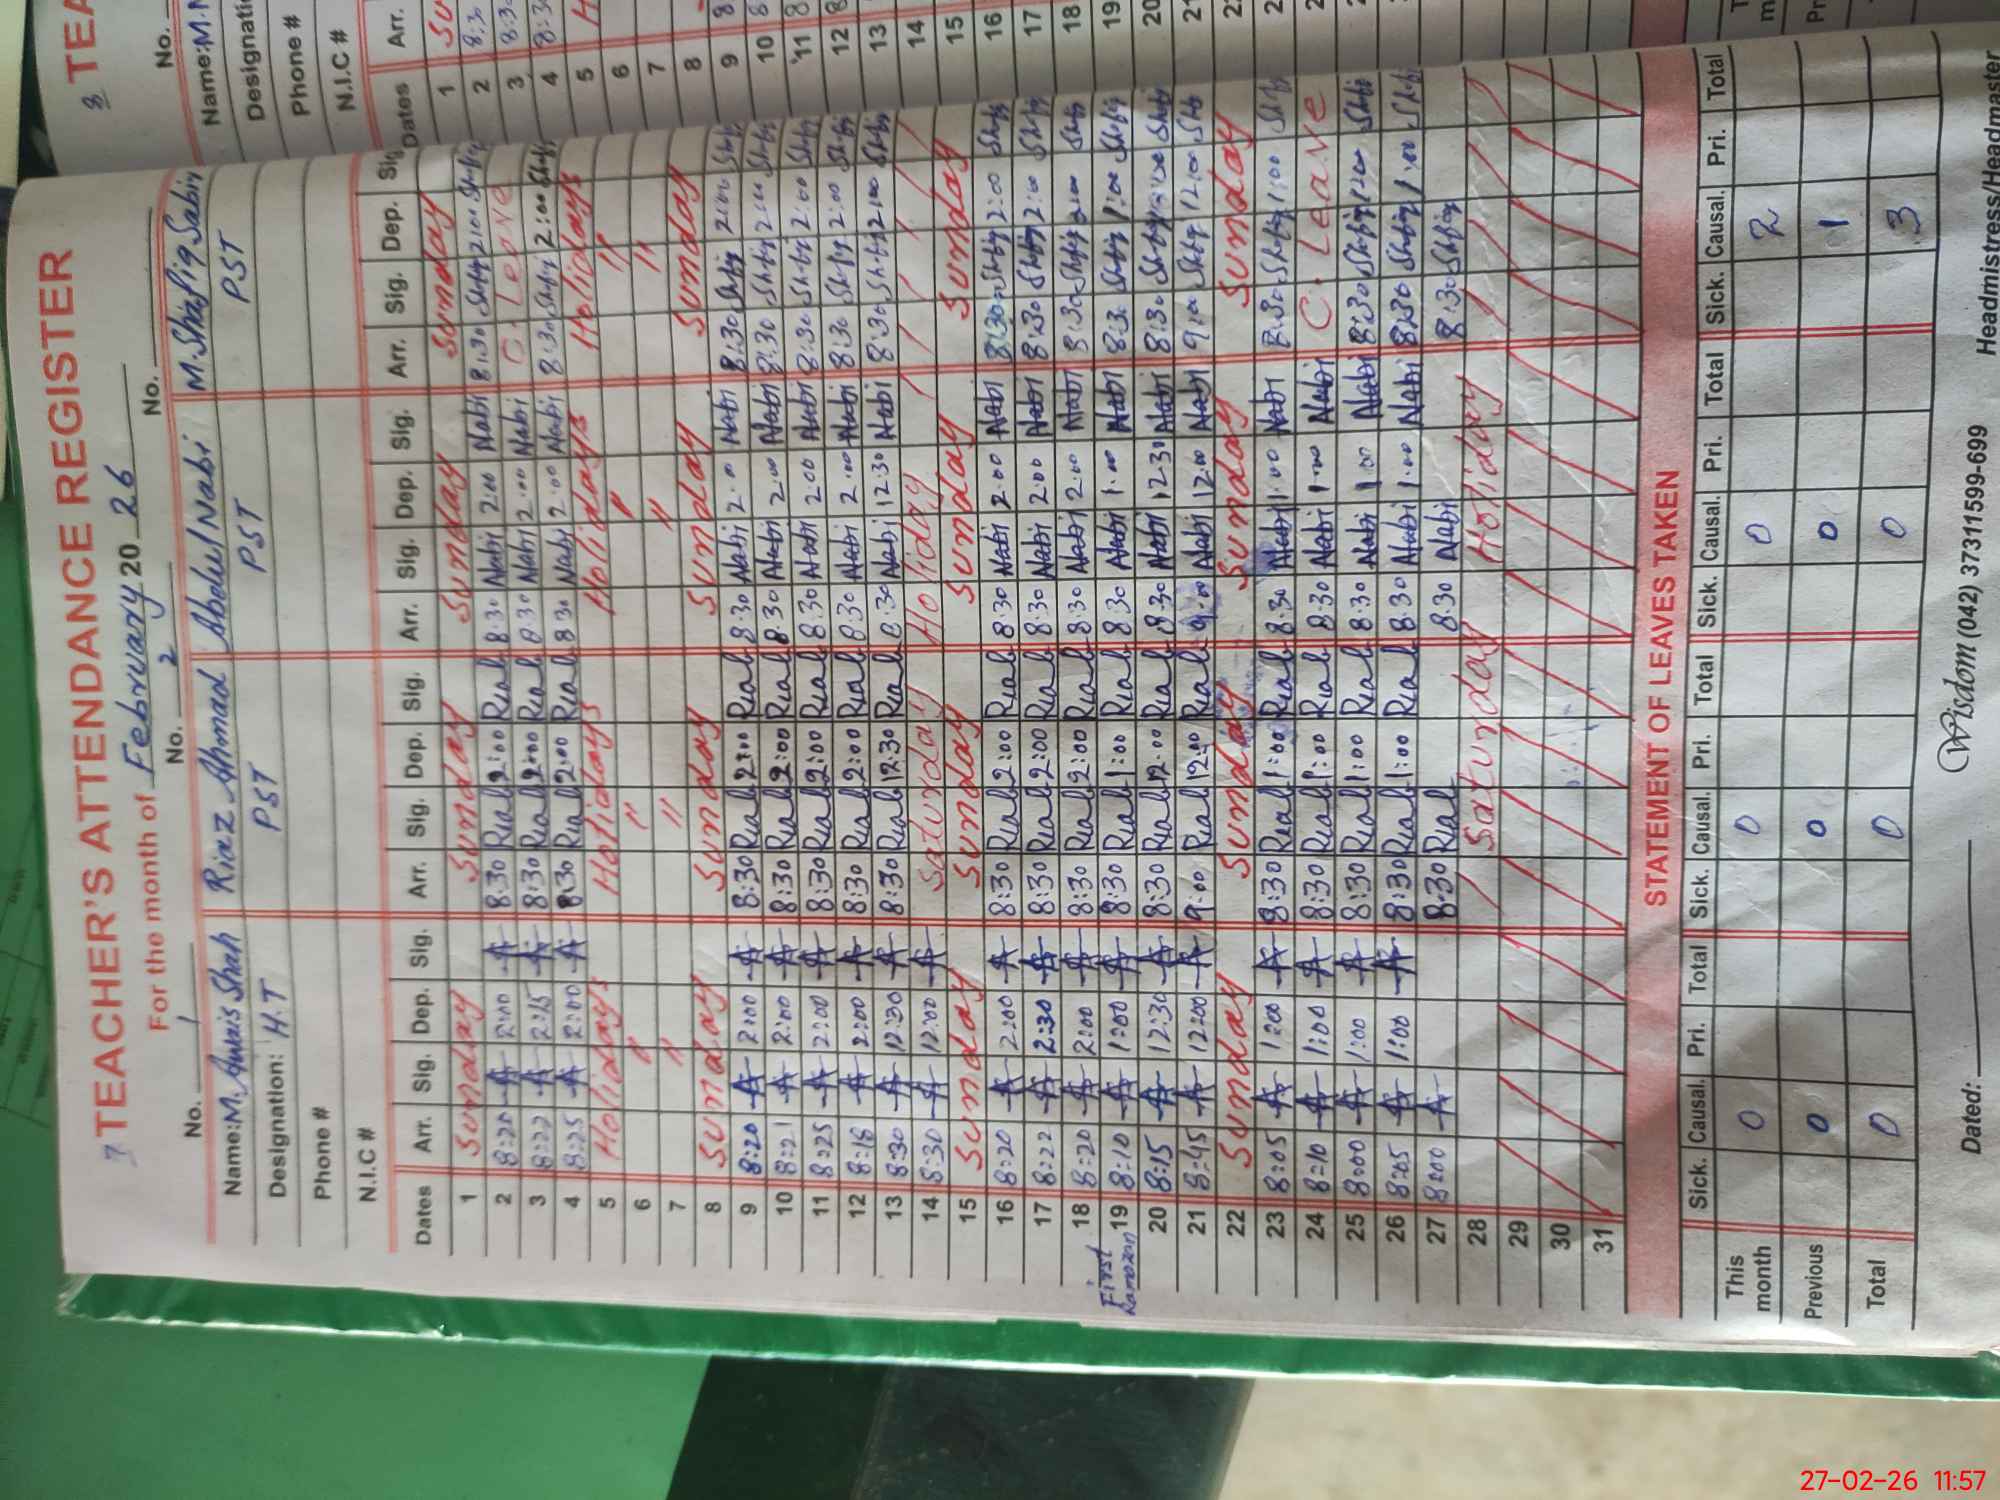 7 TEACHER'S ATTENDANCE REGISTER
For the month of February 20 26
No. 1 No. 2 No.
Name: M. Awais Shah Riaz Ahmad Abdul Nabi M. Shafiq Sabir
Designation: H.T PST PST PST
Phone #
N.I.C #
Dates Arr. Sig. Dep. Sig. Arr. Sig. Dep. Sig. Arr. Sig. Dep. Sig. Arr. Sig. Dep. Sig.
1 Sunday Sunday Sunday Sunday
2 8:20 2:00 8:30 Riaz 2:00 Riaz 8:30 Nabi 2:00 Nabi 8:30 Shafiq 2:00 Shafiq
3 8:22 2:15 8:30 Riaz 2:00 Riaz 8:30 Nabi 2:00 Nabi C. Leave
4 8:25 2:00 8:30 Riaz 2:00 Riaz 8:30 Nabi 2:00 Nabi 8:30 Shafiq 2:00 Shafiq
5 Holidays Holidays Holidays Holidays
6 " " " "
7 " " " "
8 Sunday Sunday Sunday Sunday
9 8:20 2:00 8:30 Riaz 2:00 Riaz 8:30 Nabi 2:00 Nabi 8:30 Shafiq 2:00 Shafiq
10 8:21 2:00 8:30 Riaz 2:00 Riaz 8:30 Nabi 2:00 Nabi 8:30 Shafiq 2:00 Shafiq
11 8:25 2:00 8:30 Riaz 2:00 Riaz 8:30 Nabi 2:00 Nabi 8:30 Shafiq 2:00 Shafiq
12 8:18 2:00 8:30 Riaz 2:00 Riaz 8:30 Nabi 2:00 Nabi 8:30 Shafiq 2:00 Shafiq
13 8:30 12:30 8:30 Riaz 12:30 Riaz 8:30 Nabi 12:30 Nabi 8:30 Shafiq 2:00 Shafiq
14 8:30 12:00 Saturday Holiday
15 Sunday Sunday Sunday Sunday
16 8:20 2:00 8:30 Riaz 2:00 Riaz 8:30 Nabi 2:00 Nabi 8:30 Shafiq 2:00 Shafiq
17 8:22 2:30 8:30 Riaz 2:00 Riaz 8:30 Nabi 2:00 Nabi 8:30 Shafiq 2:00 Shafiq
18 8:20 2:00 8:30 Riaz 2:00 Riaz 8:30 Nabi 2:00 Nabi 8:30 Shafiq 2:00 Shafiq
First Ramozan 19 8:10 1:00 8:30 Riaz 1:00 Riaz 8:30 Nabi 1:00 Nabi 8:30 Shafiq 1:00 Shafiq
20 8:15 12:30 8:30 Riaz 12:00 Riaz 8:30 Nabi 12:30 Nabi 8:30 Shafiq Shafiq
21 8:45 12:00 9:00 Riaz 12:00 Riaz 9:00 Nabi 12:00 Nabi 9:00 Shafiq 12:00 Shafiq
22 Sunday Sunday Sunday Sunday
23 8:05 1:00 8:30 Riaz 1:00 Riaz 8:30 Nabi 1:00 Nabi 8:30 Shafiq 1:00 Shafiq
24 8:10 1:00 8:30 Riaz 1:00 Riaz 8:30 Nabi 1:00 Nabi C. Leave
25 8:00 1:00 8:30 Riaz 1:00 Riaz 8:30 Nabi 1:00 Nabi 8:30 Shafiq 1:00 Shafiq
26 8:05 1:00 8:30 Riaz 1:00 Riaz 8:30 Nabi 1:00 Nabi 8:30 Shafiq 1:00 Shafiq
27 8:00 8:30 Riaz 8:30 Nabi 8:30 Shafiq
28 Saturday Holiday
29
30
31
STATEMENT OF LEAVES TAKEN
Sick. Causal. Pri. Total Sick. Causal. Pri. Total Sick. Causal. Pri. Total Sick. Causal. Pri. Total
This month 0 0 0 2
Previous 0 0 0 1
Total 0 0 0 3
Dated: Wisdom (042) 37311599-699 Headmistress/Headmaster
8 TEA
No.
Name: M.
Designati
Phone #
N.I.C #
Dates Arr.
1 Su
2 8:3
3 8:3
4 8:3
5 H
6
7
8
9 8
10 8
11 8
12 8
13
14
15
16
17
18
19
20
27-02-26 11:57